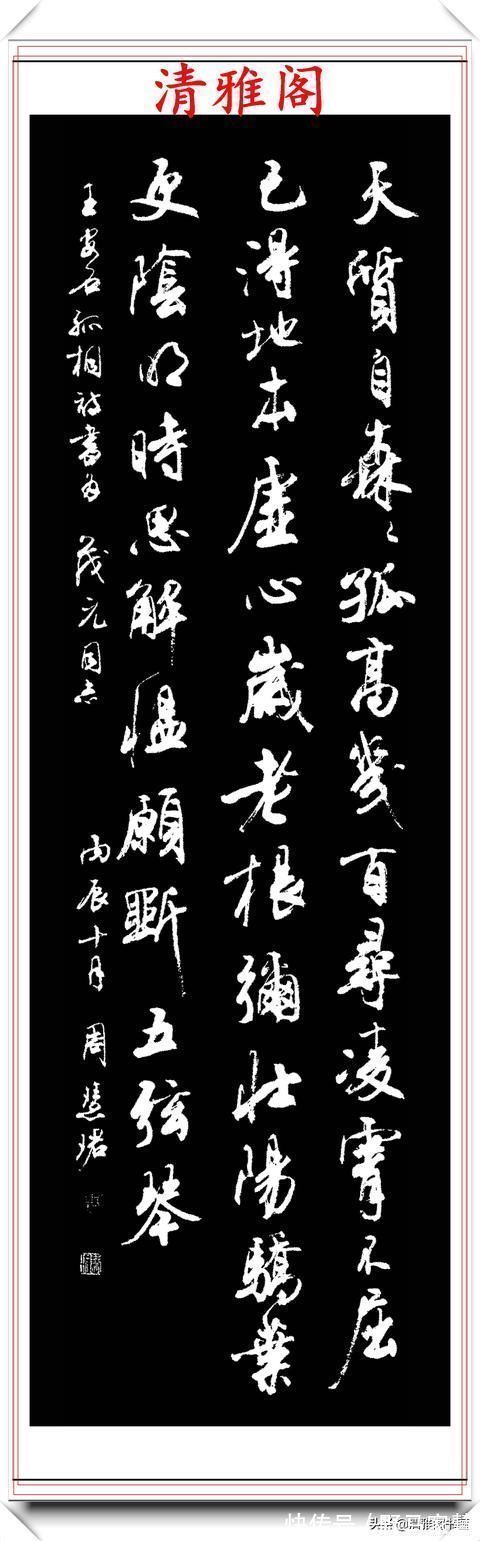 清雅阁
天質自森〻孤高幾百尋凌霄不屈
已得地本虛心歲老根彌壯陽驕葉
更陰明時思解慍願斲五弦琴
王安石孤桐詩書為 茂元同志 丙辰十月 周慧珺
快传号 /
头条